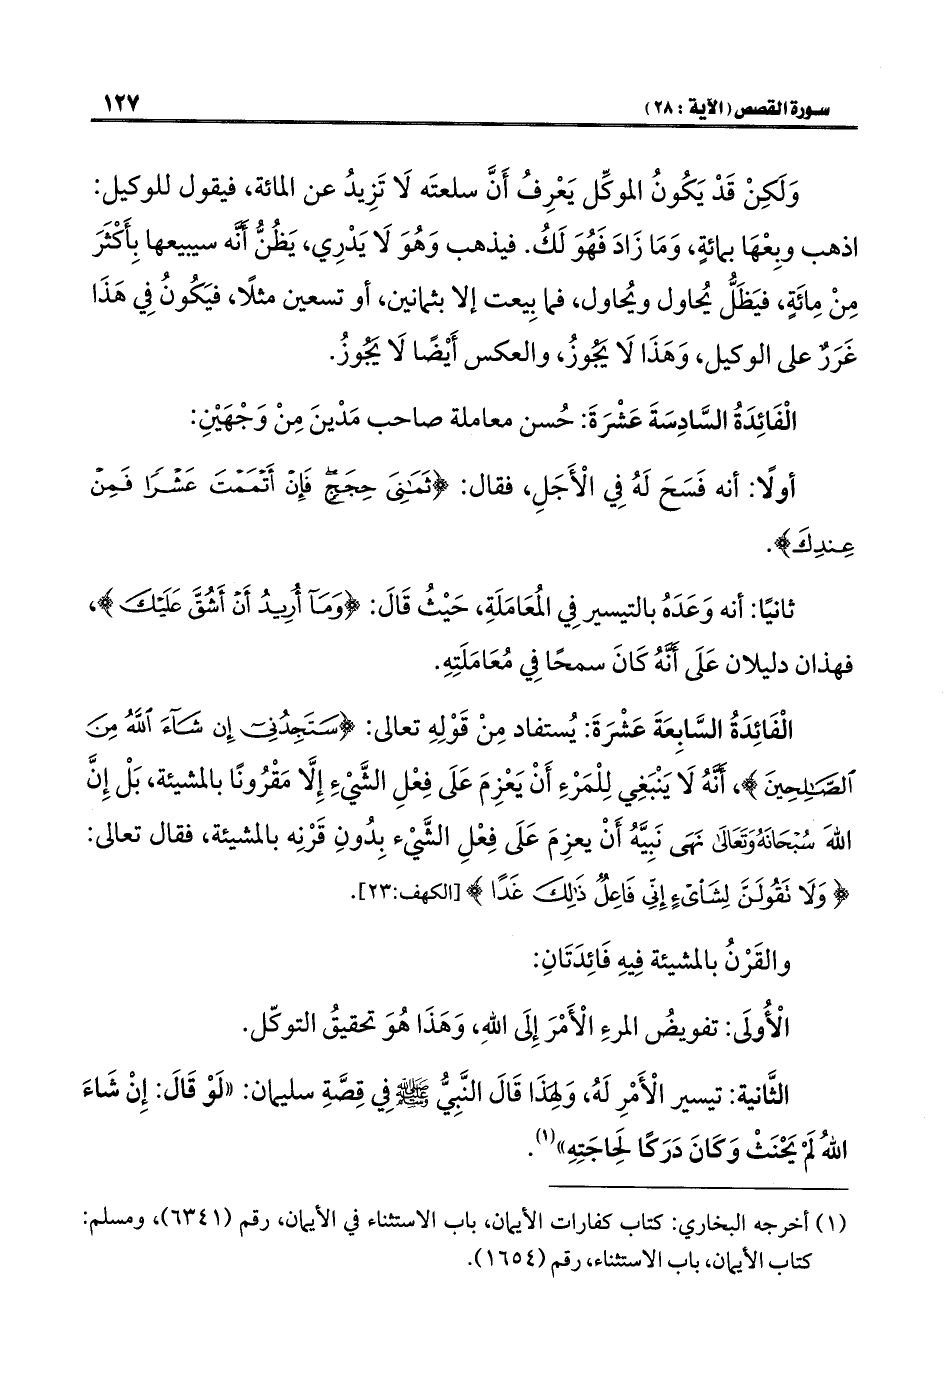 سورة القصص (الآية : ٢٨) ١٢٧
وَلَكِنْ قَدْ يَكُونُ الموكِّل يَعْرِفُ أَنَّ سلعتَه لَا تَزِيدُ عن المائة، فيقول للوكيل:
اذهب وبِعْهَا بمائةٍ، وَمَا زَادَ فَهُوَ لَكُ. فيذهب وَهُوَ لَا يَدْرِي، يَظُنُّ أَنَّه سيبيعها بِأَكْثَرَ
مِنْ مِائَةٍ، فيَظَلُّ يُحاول ويُحاول، فما بِيعت إلا بثمانين، أو تسعين مثلًا، فيَكُونُ فِي هَذَا
غَرَرٌ على الوكيل، وَهَذَا لَا يَجُوزُ، والعكس أَيْضًا لَا يَجُوزُ.
الْفَائِدَةُ السَّادِسَةَ عَشْرَةَ: حُسن معاملة صاحب مَدْيَنَ مِنْ وَجْهَيْنِ:
أولًا: أنه فَسَحَ لَهُ فِي الْأَجَلِ، فقال: ﴿ثَمَٰنِىَ حِجَجٍۖ فَإِنْ أَتْمَمْتَ عَشْرًا فَمِنْ
عِندِكَ﴾.
ثانيًا: أنه وَعَدَهُ بالتيسير فِي الْمُعَامَلَةِ، حَيْثُ قَالَ: ﴿وَمَآ أُرِيدُ أَنْ أَشُقَّ عَلَيْكَ﴾،
فهذان دليلان عَلَى أَنَّهُ كَانَ سمحًا فِي مُعَامَلَتِهِ.
الْفَائِدَةُ السَّابِعَةَ عَشْرَةَ: يُستفاد مِنْ قَوْلِهِ تعالى: ﴿سَتَجِدُنِىٓ إِن شَآءَ ٱللَّهُ مِنَ
ٱلصَّٰلِحِينَ﴾، أَنَّهُ لَا يَنْبَغِي لِلْمَرْءِ أَنْ يَعْزِمَ عَلَى فِعْلِ الشَّيْءِ إِلَّا مَقْرُونًا بالمشيئة، بَلْ إِنَّ
اللهَ سُبْحَانَهُ وَتَعَالَى نَهَى نَبِيَّهُ أَنْ يعزمَ عَلَى فِعْلِ الشَّيْءِ بِدُونِ قَرْنِه بالمشيئة، فقال تعالى:
﴿وَلَا تَقُولَنَّ لِشَا۟ىْءٍ إِنِّى فَاعِلٌ ذَٰلِكَ غَدًا﴾ [الكهف:٢٣].
والقَرْنُ بالمشيئة فِيهِ فَائِدَتَانِ:
الْأُولَى: تفويضُ المرءِ الْأَمْرَ إِلَى اللهِ، وَهَذَا هُوَ تحقيقُ التوكّل.
الثَّانية: تيسير الْأَمْرِ لَهُ، وَلِهَذَا قَالَ النَّبِيُّ ﷺ فِي قِصَّةِ سليمان: «لَوْ قَالَ: إِنْ شَاءَ
اللهُ لَمْ يَحْنَثْ وَكَانَ دَرَكًا لِحَاجَتِهِ»(١).
(١) أخرجه البخاري: كتاب كفارات الأيمان، باب الاستثناء في الأيمان، رقم (٦٣٤١)، ومسلم:
كتاب الأيمان، باب الاستثناء، رقم (١٦٥٤).